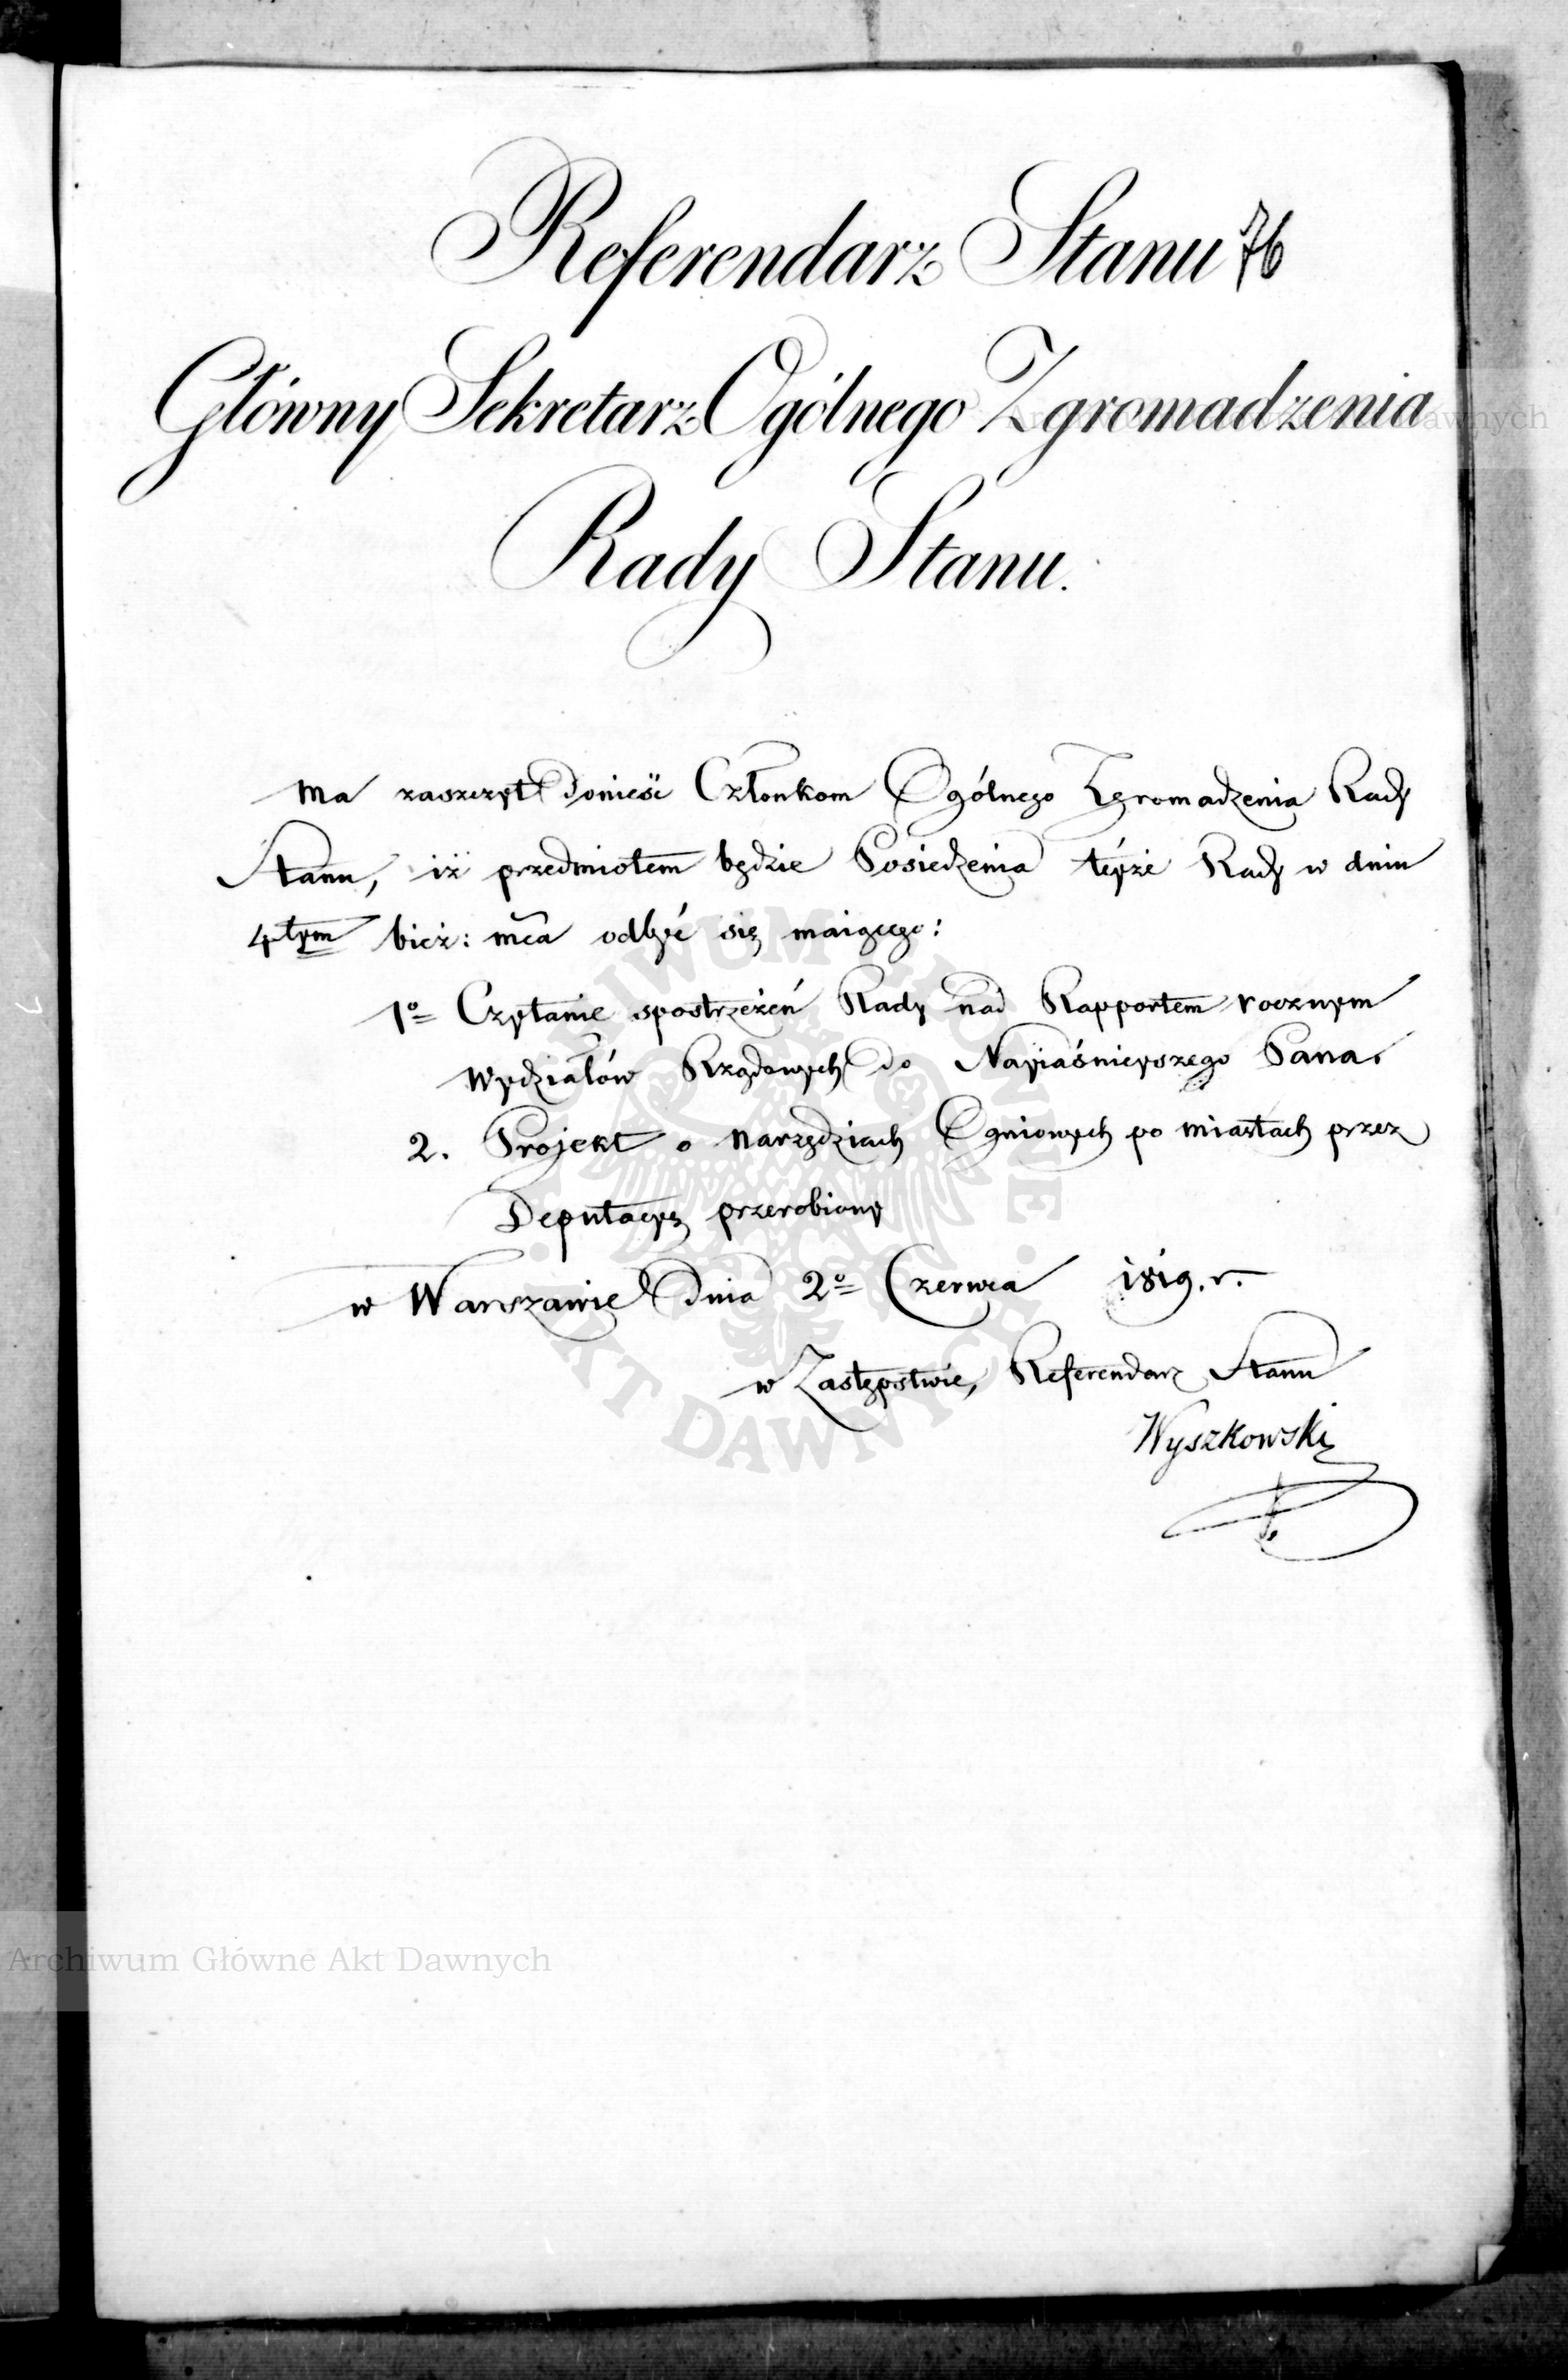 Referendarz Stanu 76
Główny Sekretarz Ogólnego Zgromadzenia
Archiwum Główne Akt Dawnych
Rady Stanu.
Ma zaszczyt donieść Członkom Ogólnego Zgromadzenia Rady
Stanu, iż przedmiotem będzie Posiedzenia téyże Rady w dniu
4tym bież: mca odbyć się maiącego:
1o Czytanie spostrzeżeń Rady nad Rapportem rocznym
Wydziałów Rządowych do Nayiaśnieyszego Pana.
2. Projekt o narzędziach Ogniowych po miastach przez
Deputacyą przerobiony
w Warszawie dnia 2o Czerwca 1819. r.
w Zastępstwie, Referendarz Stanu
Wyszkowski
ARCHIWUM GŁÓWNE · AKT DAWNYCH ·
Archiwum Główne Akt Dawnych